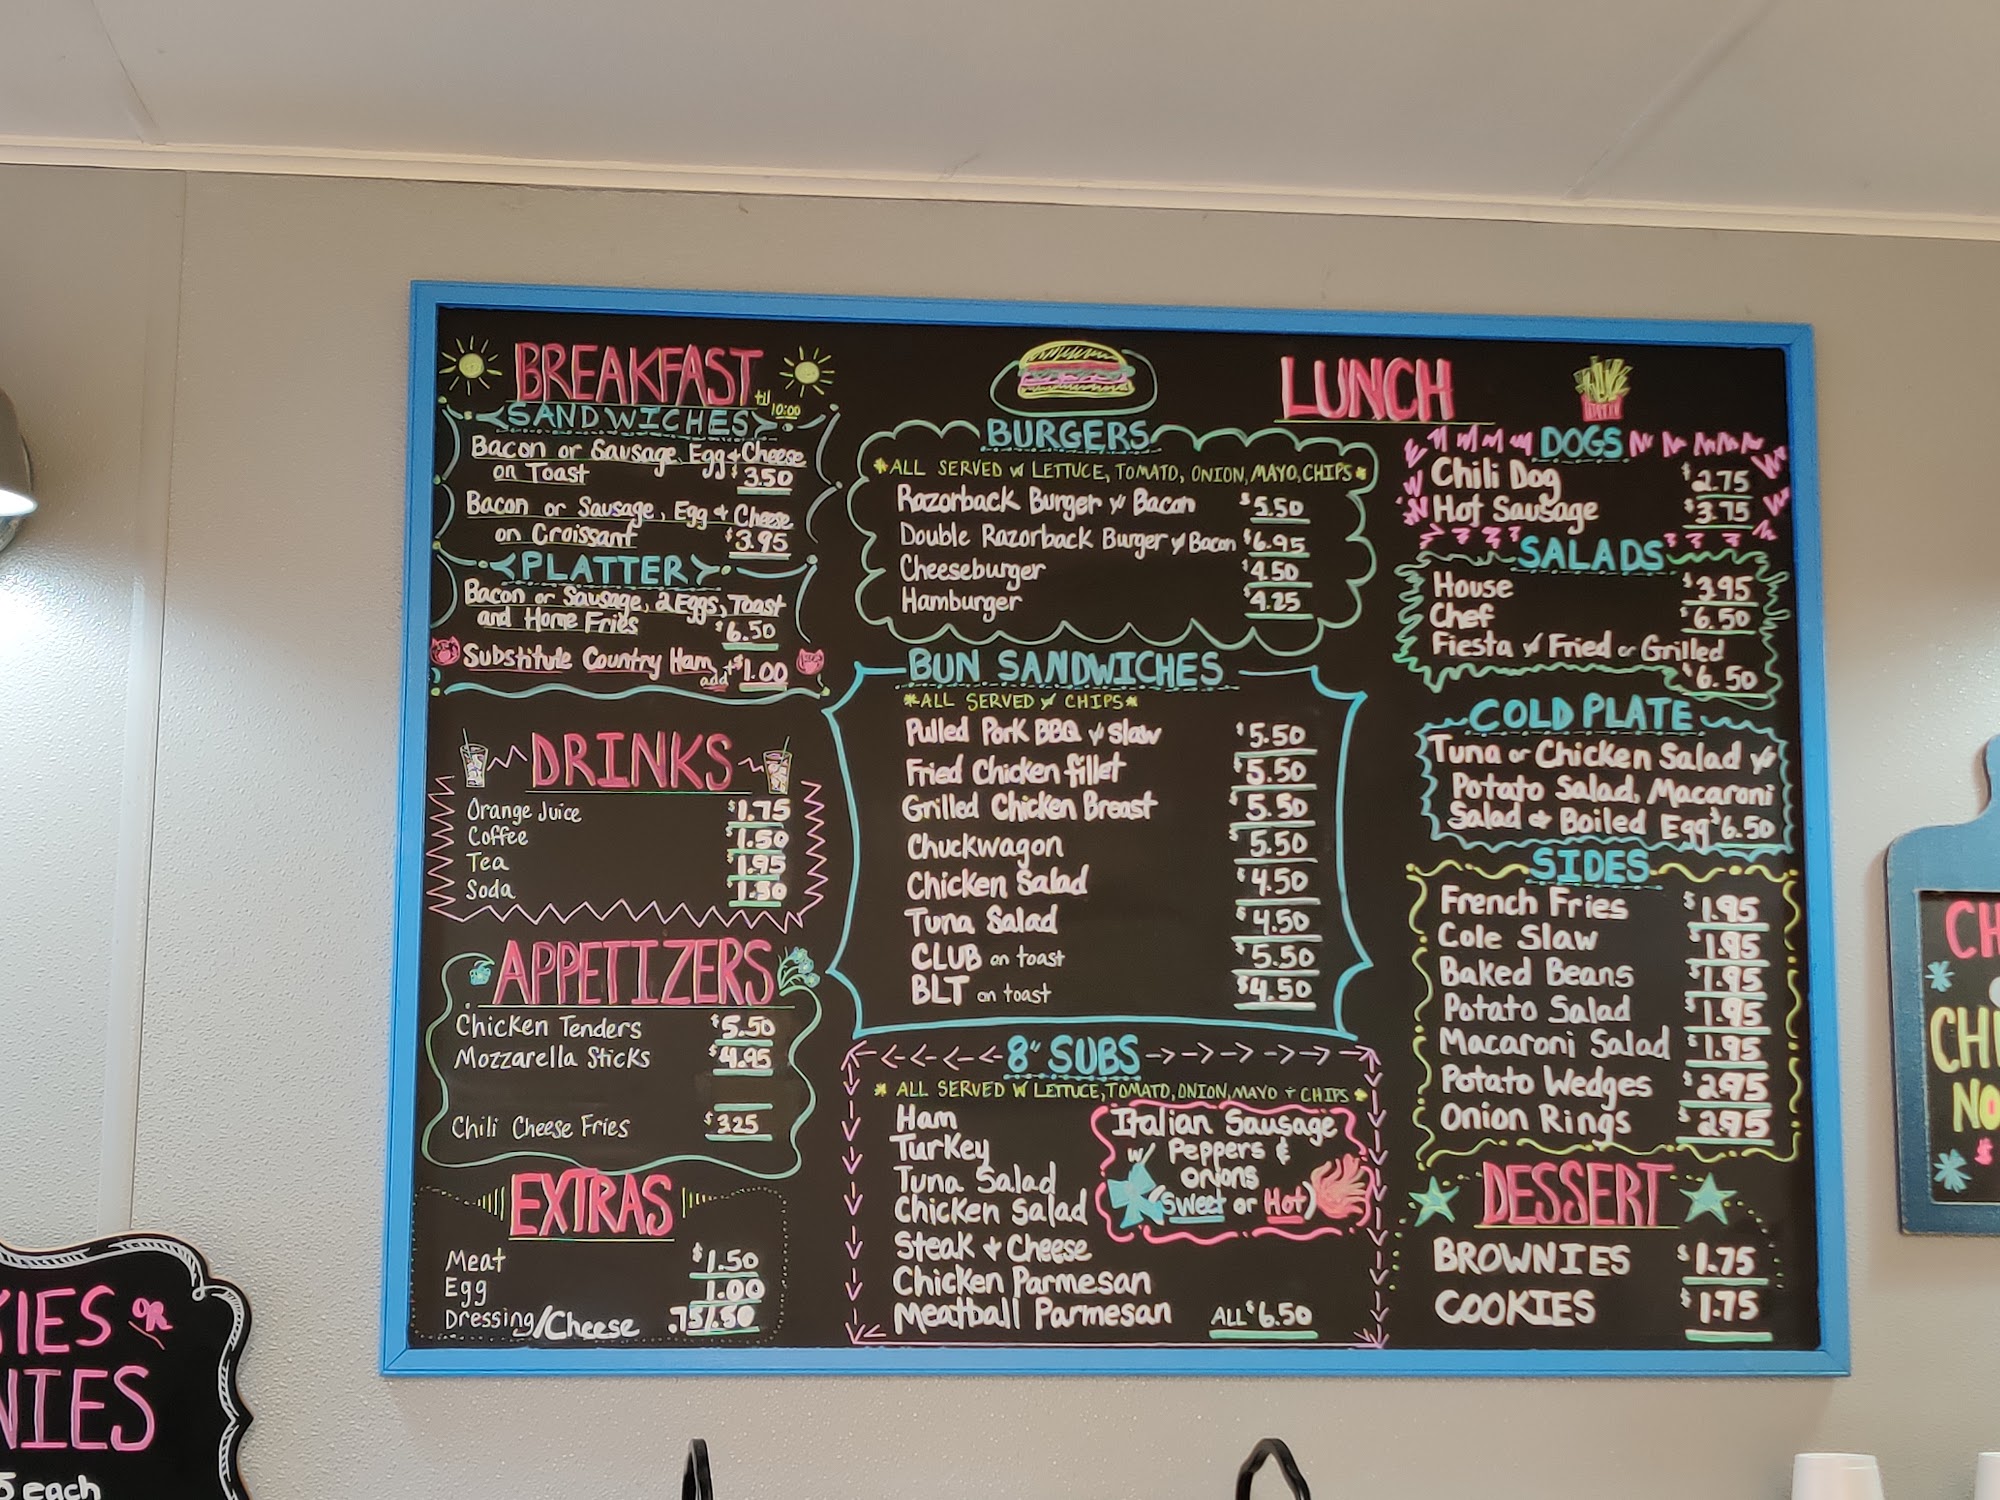 BREAKFAST til 10:00
SANDWICHES
Bacon or Sausage, Egg & Cheese
on Toast $3.50
Bacon or Sausage, Egg & Cheese
on Croissant $3.95
PLATTER
Bacon or Sausage, 2 Eggs, Toast
and Home Fries $6.50
Substitute Country Ham add +$1.00
DRINKS
Orange Juice $1.75
Coffee $1.50
Tea $1.95
Soda $1.50
APPETIZERS
Chicken Tenders $5.50
Mozzarella Sticks $4.95
Chili Cheese Fries $3.25
EXTRAS
Meat $1.50
Egg 1.00
Dressing/Cheese .75/.50
LUNCH
BURGERS
*ALL SERVED w/ LETTUCE, TOMATO, ONION, MAYO, CHIPS*
Razorback Burger w/ Bacon $5.50
Double Razorback Burger w/ Bacon $6.95
Cheeseburger $4.50
Hamburger $4.25
BUN SANDWICHES
*ALL SERVED w/ CHIPS*
Pulled Pork BBQ w/ Slaw $5.50
Fried Chicken fillet $5.50
Grilled Chicken Breast $5.50
Chuckwagon $5.50
Chicken Salad $4.50
Tuna Salad $4.50
CLUB on toast $5.50
BLT on toast $4.50
8" SUBS
* ALL SERVED W/ LETTUCE, TOMATO, ONION, MAYO + CHIPS *
Ham
Turkey
Tuna Salad
Chicken Salad
Steak & Cheese
Chicken Parmesan
Meatball Parmesan ALL $6.50
Italian Sausage
w/ Peppers &
onions
(Sweet or Hot)
DOGS
Chili Dog $2.75
Hot Sausage $3.75
SALADS
House $3.95
Chef $6.50
Fiesta w/ Fried or Grilled
$6.50
COLD PLATE
Tuna or Chicken Salad w/
Potato Salad, Macaroni
Salad & Boiled Egg $6.50
SIDES
French Fries $1.95
Cole Slaw $1.95
Baked Beans $1.95
Potato Salad $1.95
Macaroni Salad $1.95
Potato Wedges $2.95
Onion Rings $2.95
DESSERT
BROWNIES $1.75
COOKIES $1.75
KIES OR
NIES
5 each
CH
CHI
NO
$